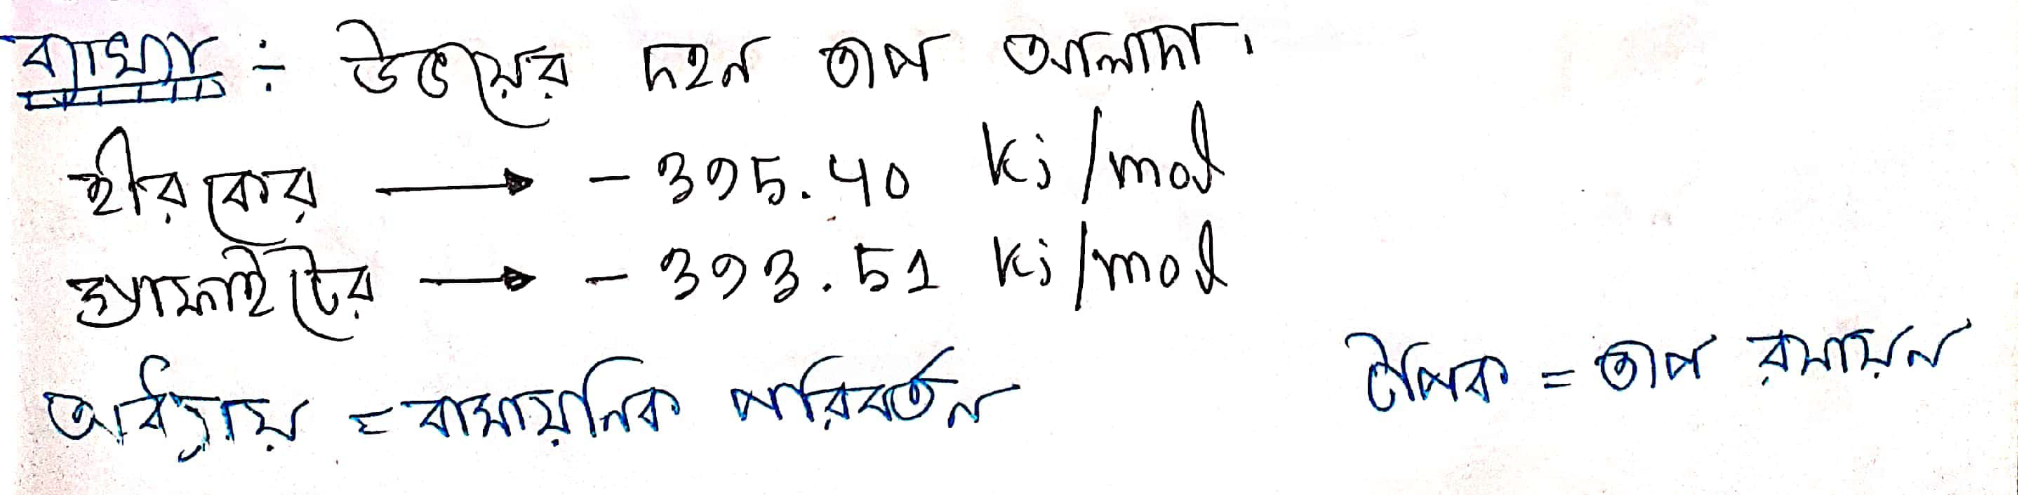 ব্যাখ্যা ÷ উভয়ের দহন তাপ আলাদা।
হীরকের → - 395.40 kj/mol
গ্রাফাইটের → - 393.51 kj/mol
অধ্যায় = রাসায়নিক পরিবর্তন টপিক = তাপ রসায়ন